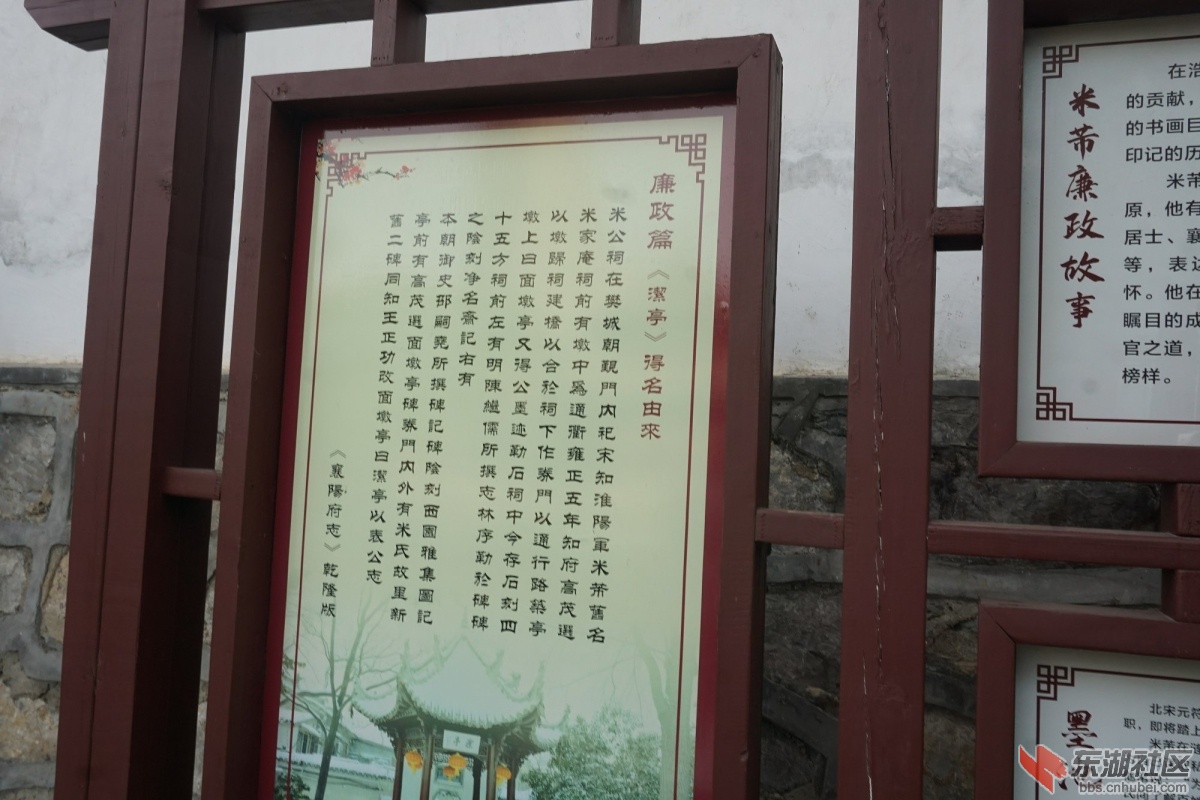 廉政篇《潔亭》得名由來
米公祠在樊城朝覲門內祀宋知淮陽軍米芾舊名
米家庵祠前有墩中爲通衢雍正五年知府高茂選
以墩歸祠建橋以合於祠下作券門以通行路築亭
墩上曰面墩亭又得公墨迹勒石祠中今存石刻四
十五方祠前左有明陳繼儒所撰志林序勒於碑碑
之陰刻净名齋記右有
本朝御史邵嗣堯所撰碑記碑陰刻西園雅集圖記
亭前有高茂選面墩亭碑券門內外有米氏故里新
舊二碑同知王正功改面墩亭曰潔亭以表公志
《襄陽府志》乾隆版
米芾廉政故事
在浩
的贡献，
的书画巨
印记的历
米芾
原，他有
居士、襄
等，表达
怀。他在
瞩目的成
官之道，
榜样。
墨
北宋元符
职，即将踏上
米芾在
东湖社区
bbs.cnhubei.com